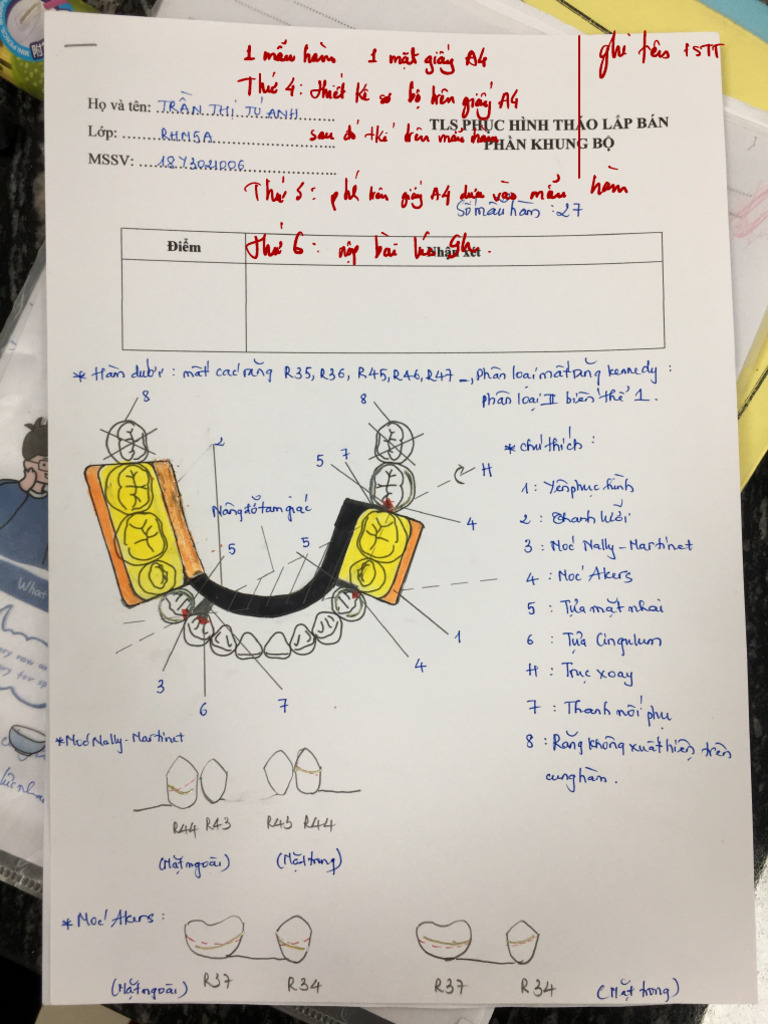 1 mẫu hàm 1 mặt giấy A4
ghi tên, STT
Thứ 4: thiết kế sơ bộ trên giấy A4
Họ và tên: TRẦN THỊ TÚ ANH
TLS PHỤC HÌNH THÁO LẮP BÁN
Lớp: RHM5A
sau đó tkế trên mẫu hàm
PHẦN KHUNG BỘ
MSSV: 1873021006
Thứ 5: phế trên giấy A4 dựa vào mẫu hàm
Số mẫu hàm: 27
Thứ 6: nộp bài lúc 9h.
Điểm
Nhận xét
* Hàm dưới: mất các răng R35, R36, R45, R46, R47 _, phân loại mất răng Kennedy:
phân loại II biến thể 1.
8
8
2
7
5
H
* chú thích:
1: Yên phục hình
Nâng đỡ tam giác
4
2: Thanh lưỡi
5
5
3: Móc Nally-Martinet
4: Móc Akers
5: Tựa mặt nhai
1
6: Tựa Cingulum
4
H: Trục xoay
3
6
7
7: Thanh nối phụ
* Móc Nally-Martinet
8: Răng không xuất hiện trên
cung hàm.
R44 R43 R45 R44
(Mặt ngoài) (Mặt trong)
* Móc Akers:
(Mặt ngoài) R37 R34 R37 R34 (Mặt trong)
What